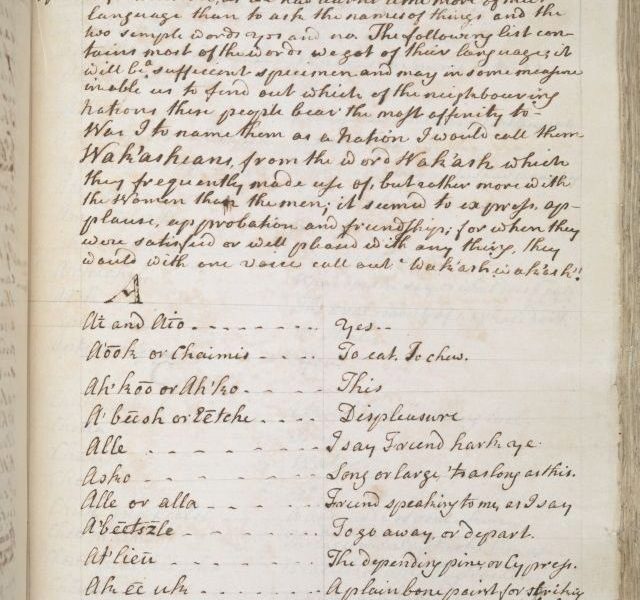 language than to ask the names of things and the
two simple words yes and no. The following list con-
tains most of the words we got of their language; it
will be a sufficient specimen and may in some measure
inable us to find out which of the neighbouring
nations these people bear the most affinity to-
Was I to name them as a nation I would call them
Wak'asheans, from the word Wak'ash which
they frequently made use of, but rather more with
the women than the men; it seemed to express ap-
plause, approbation and friendship; for when they
were satisfied or well pleased with any thing, they
would with one voice call out Wak'ash! wak'ash!!
A
At and Ato Yes--
Aōōk or Chaimis To eat. To chew.
Ah'kōō or Ah'ko This
A'bēēsh or Eētche Displeasure
Alle I say Friend hark ye
Asko Long or large, 'tis as long as this.
Alle or alla Friend speaking to me, as I say
A'bēētszle To go away, or depart.
At'lieū The depending pine, or Cypress.
Ak ēē uk A plain bone point for striking